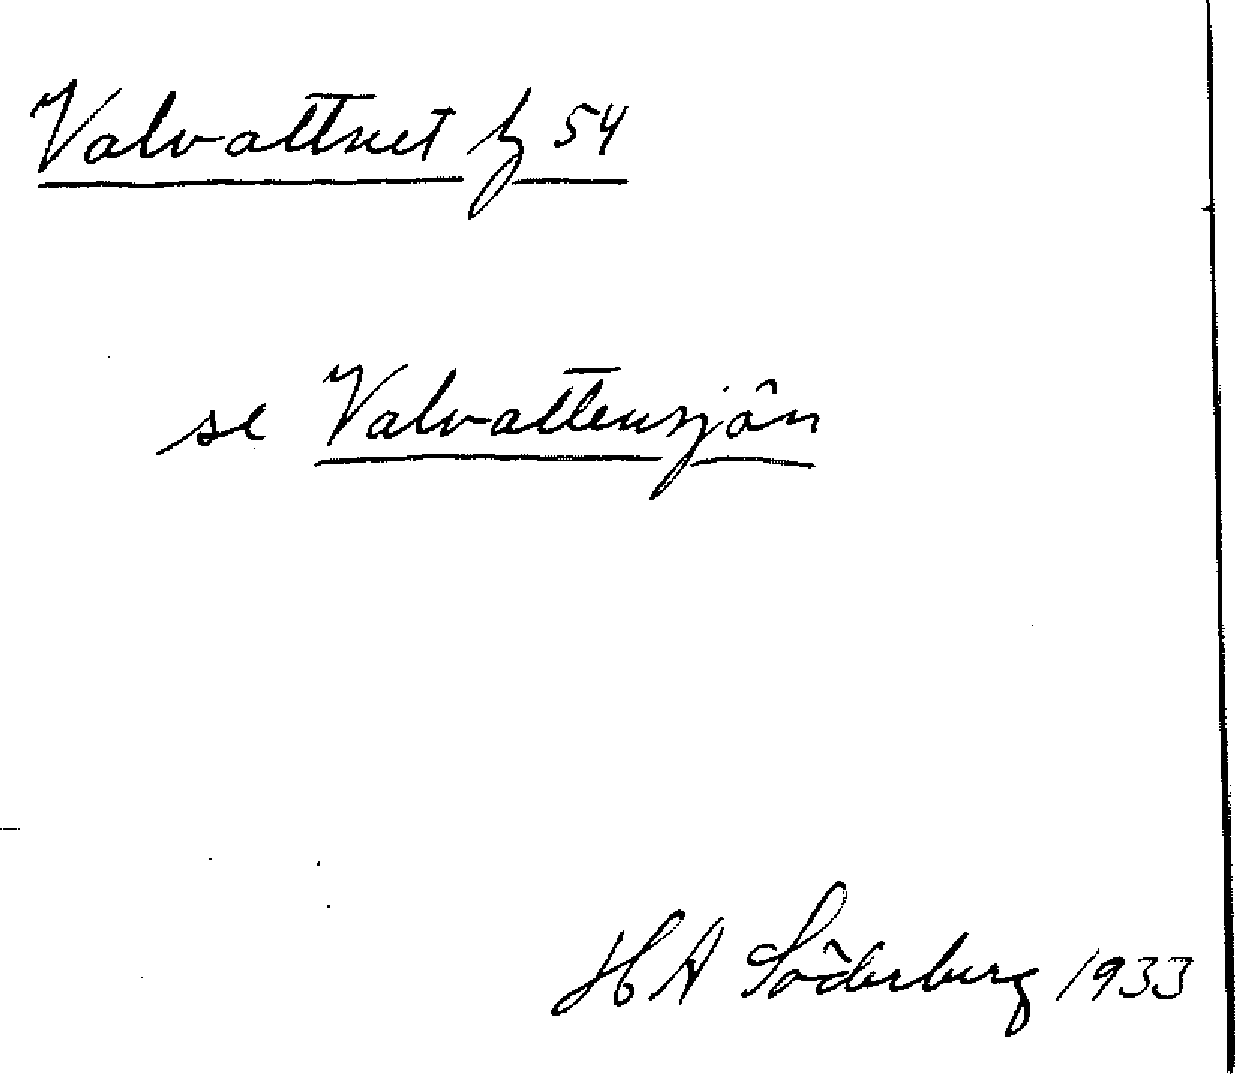 Valvattnet 54
se Valvattensjön
H A Söderberg 1933